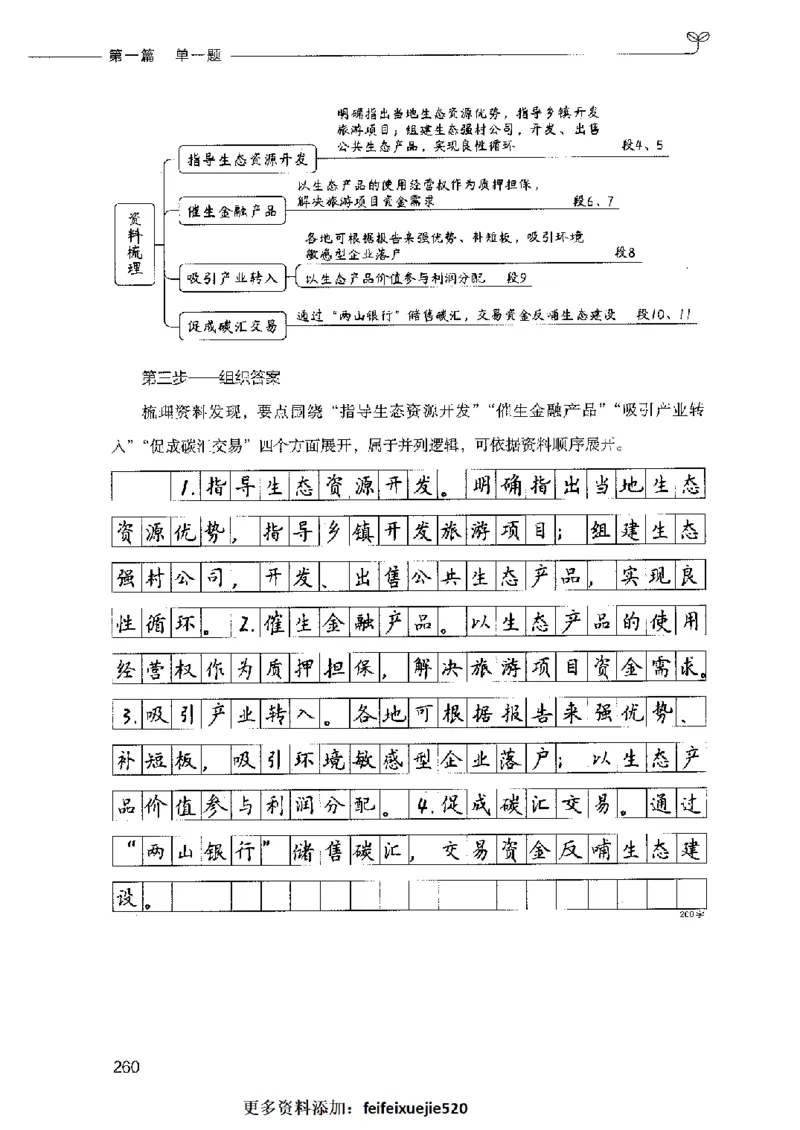 第一篇 单一题
明确指出当地生态资源优势，指导乡镇开发
旅游项目；组建生态强村公司，开发、出售
公共生态产品，实现良性循环 段4、5
指导生态资源开发
以生态产品的使用经营权作为质押担保，
解决旅游项目资金需求 段6、7
催生金融产品
资料梳理
各地可根据报告来强优势、补短板，吸引环境
敏感型企业落户 段8
吸引产业转入
以生态产品价值参与利润分配 段9
促成碳汇交易
通过“两山银行”储售碳汇，交易资金反哺生态建设 段10、11
第三步——组织答案
梳理资料发现，要点围绕“指导生态资源开发”“催生金融产品”“吸引产业转
入”“促成碳汇交易”四个方面展开，属于并列逻辑，可依据资料顺序展开。
1.指导生态资源开发。明确指出当地生态
资源优势，指导乡镇开发旅游项目；组建生态
强村公司，开发、出售公共生态产品，实现良
性循环。2.催生金融产品。以生态产品的使用
经营权作为质押担保，解决旅游项目资金需求。
3.吸引产业转入。各地可根据报告来强优势、
补短板，吸引环境敏感型企业落户；以生态产
品价值参与利润分配。4.促成碳汇交易。通过
“两山银行”储售碳汇，交易资金反哺生态建
设。
200字
260
更多资料添加：feifeixuejie520